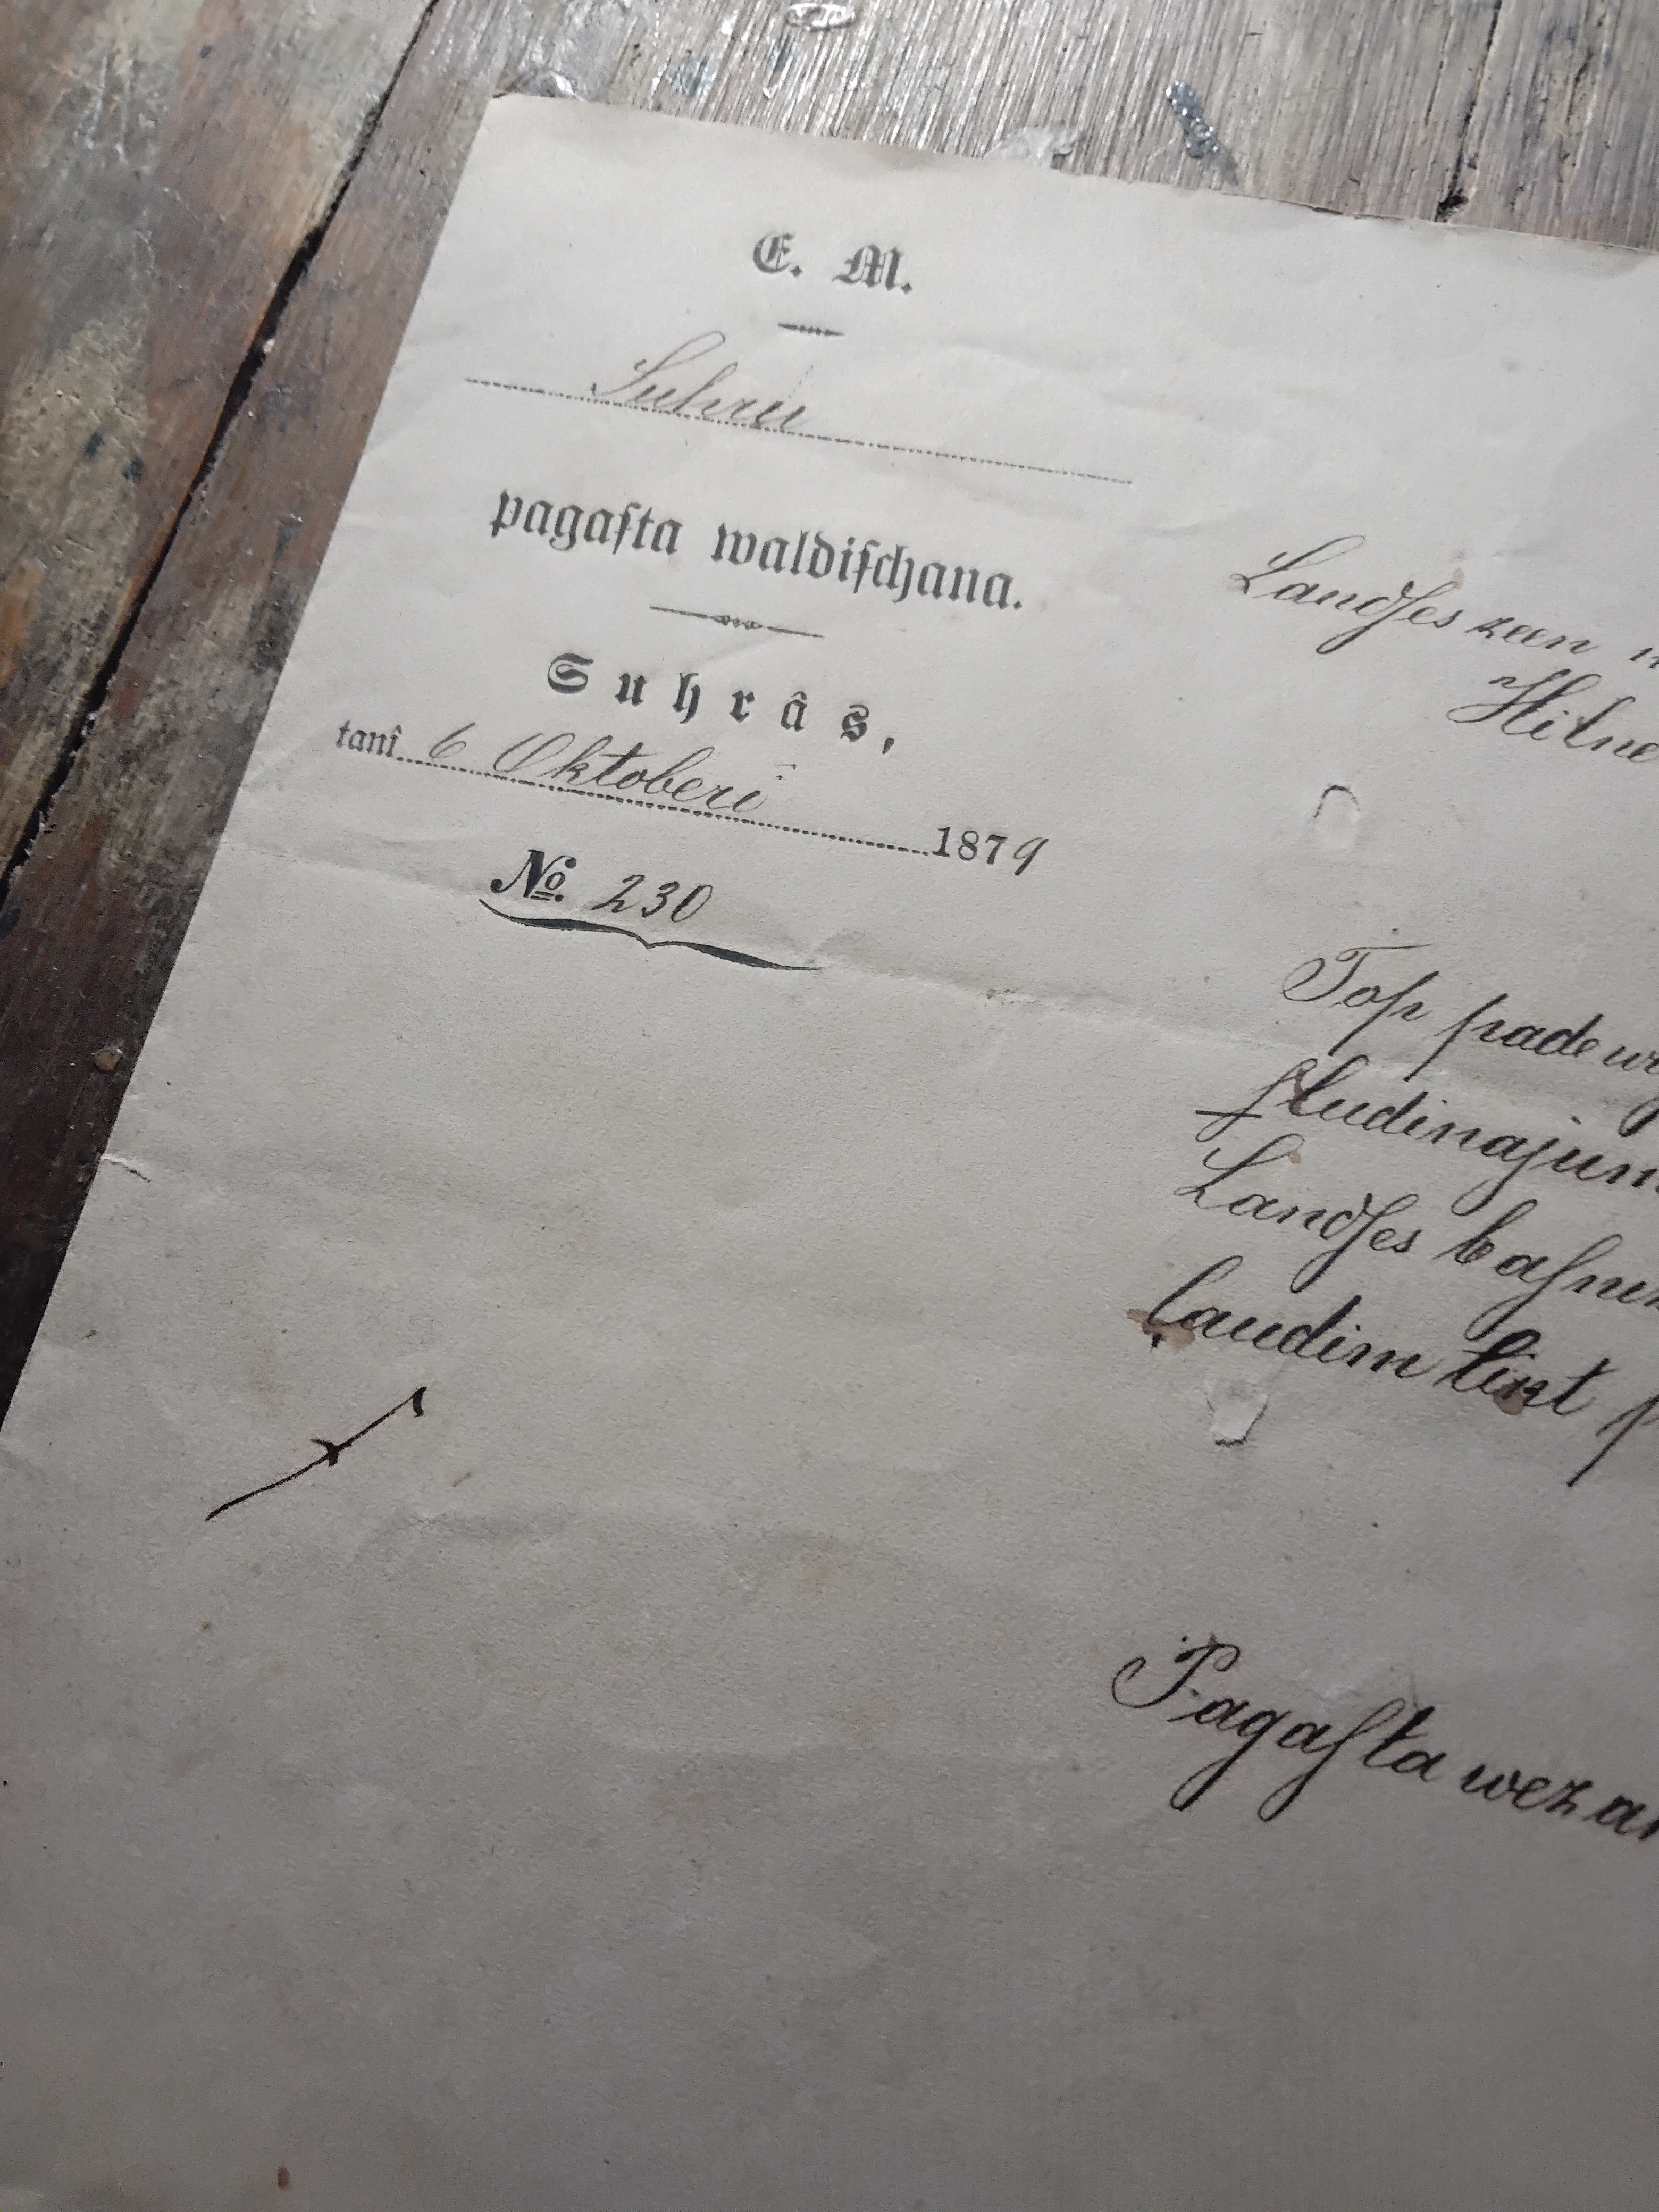 E. M.
Suhru
pagaſta waldiſchana.
Suhrâs,
tanî 6 Oktoberi 1879
№ 230
Landſes zeen
Hilne
Top
ſludinajum
Landſes baſniz
laudim likt
Pagaſta weza